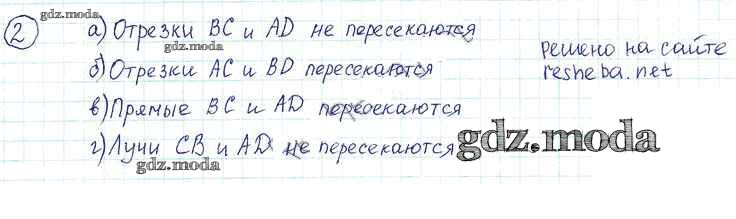 2
gdz.moda
а) Отрезки BC и AD не пересекаются
gdz.moda
б) Отрезки AC и BD пересекаются
решено на сайте
resheba.net
в) Прямые BC и AD пересекаются
г) Лучи CB и AD не пересекаются
gdz.moda
gdz.moda